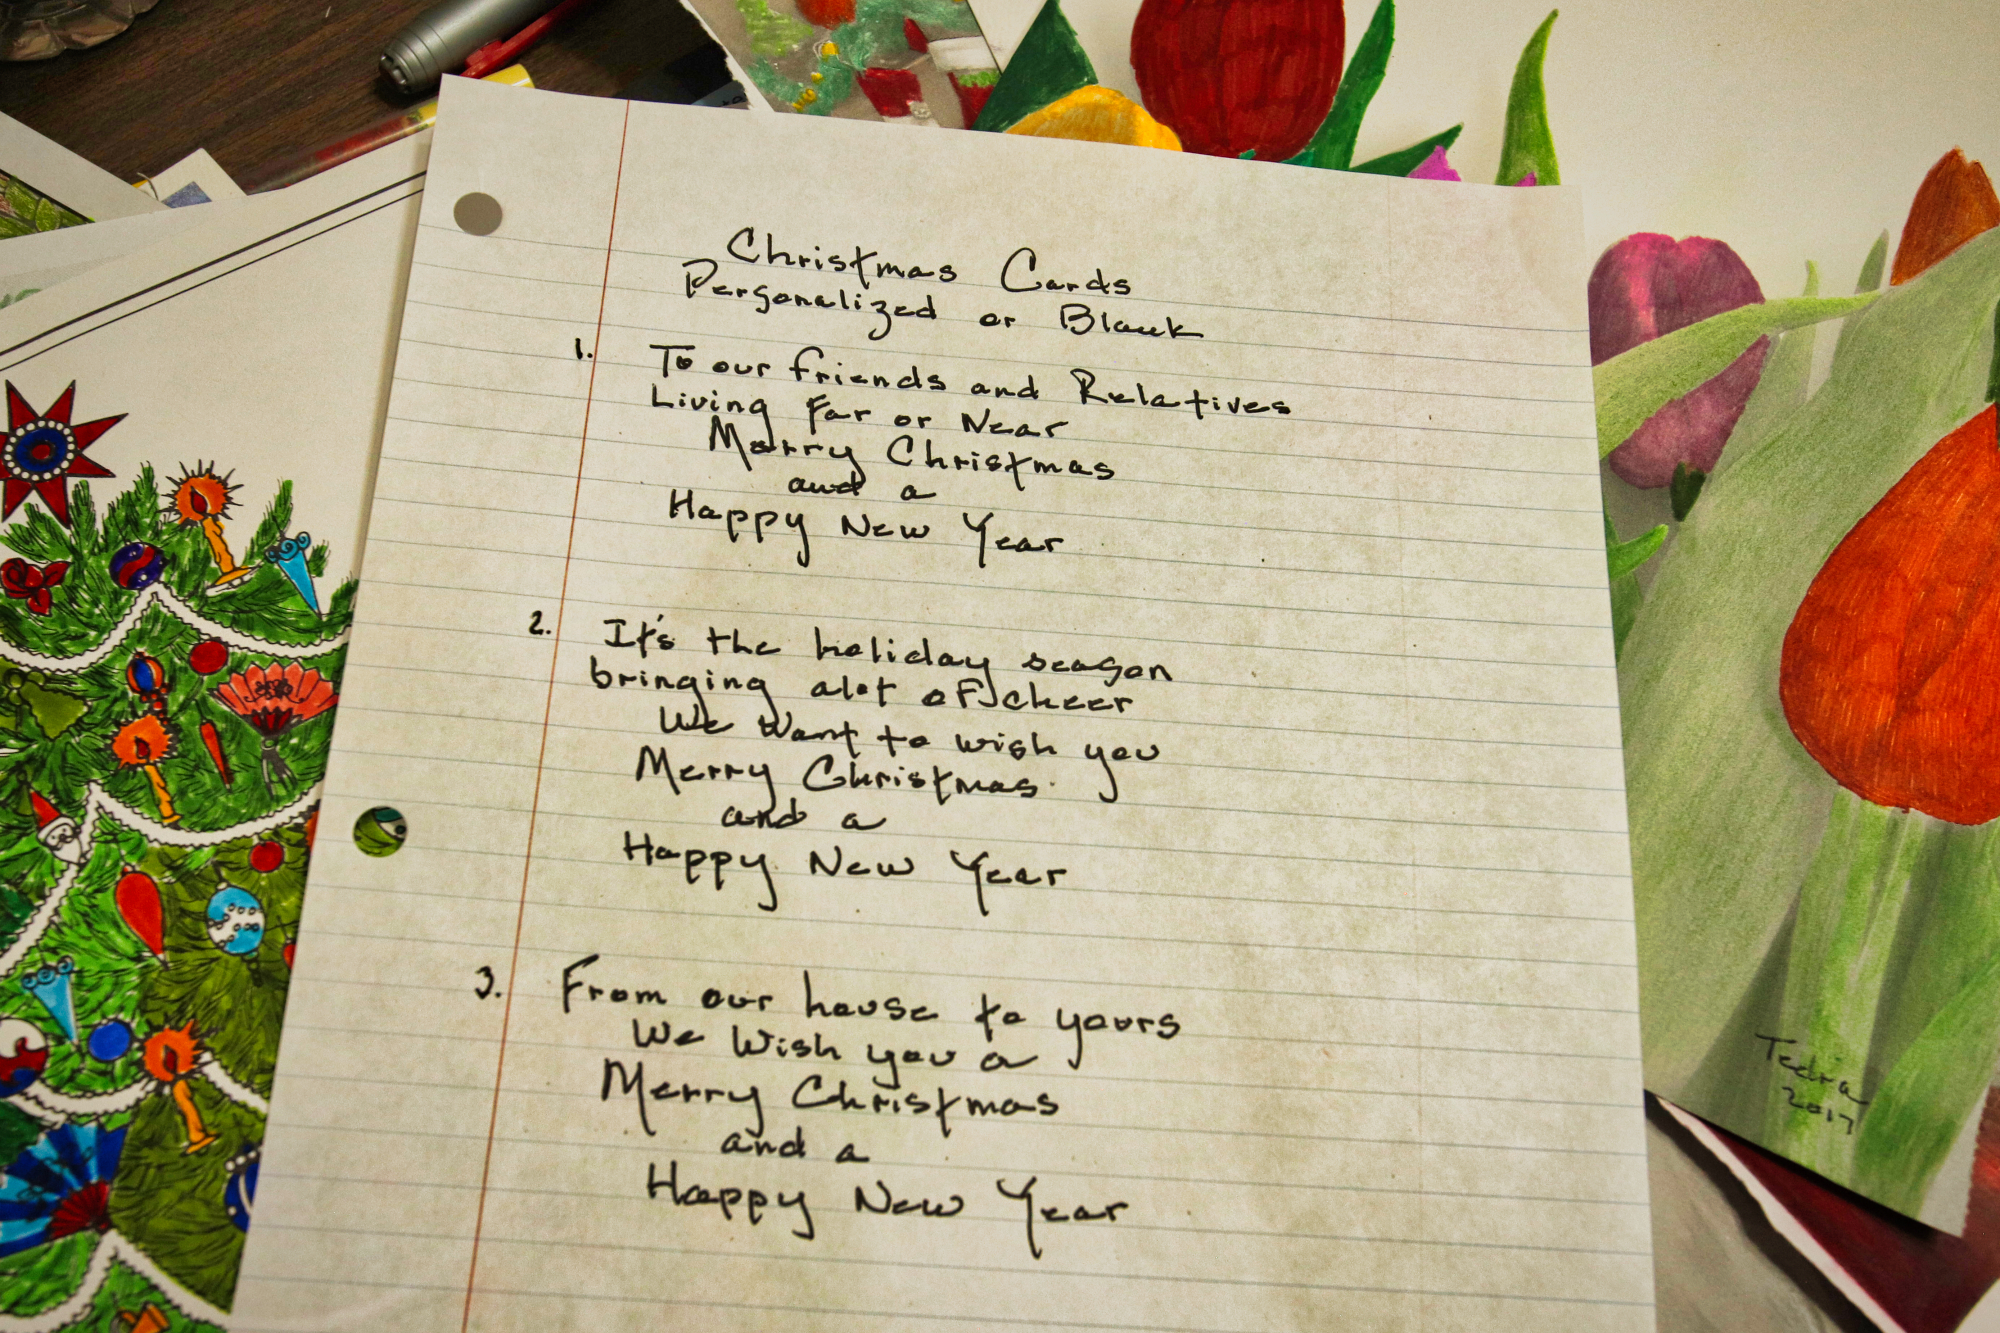 Christmas Cards
Personalized or Blank
1. To our friends and Relatives
Living Far or Near
Merry Christmas
and a
Happy New Year
2. It's the holiday season
bringing alot of cheer
We Want to wish you
Merry Christmas
and a
Happy New Year
3. From our house to yours
We Wish you a
Merry Christmas
and a
Happy New Year
Tedra
2017